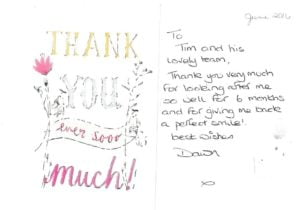 THANK
YOU
ever sooo
much!
June 2016
To
Tim and his
lovely team,
Thank you very much
for looking after me
so well for 6 months
and for giving me back
a perfect smile!
best wishes
Dawn
x